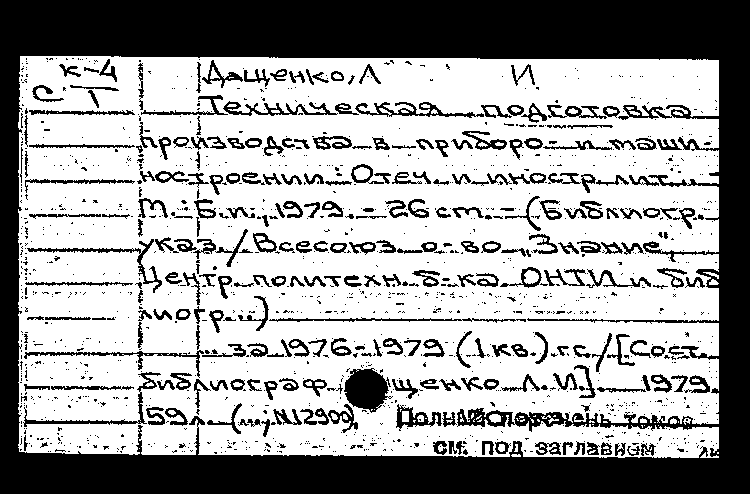 к-4 Дащенко, Л И
С Т Техническая подготовка
производства в приборо- и маши-
ностроении: Отеч. и иностр. лит...-
М.: Б.и., 1979. - 26 cm. - (Библиогр.
указ. / Всесоюз. о-во „Знание",
Центр. политехн. б-ка ОНТИ и биб
лиогр...)
... за 1976-1979 (1 кв.) г.г. / [Сост.
библиограф щенко Л. И.]. 1979.
159 л. (№12900).
Полный перечень томов
см. под заглавием